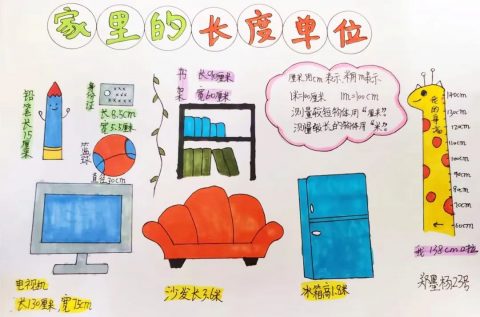 家里的长度单位
铅笔长15厘米
身份证
长8.5厘米
宽5.5厘米
篮球
直径30cm
书架
长90厘米
宽60厘米
厘米用cm表示,米用m表示
1米=100厘米 1m=100cm
测量较短物体用“厘米”
测量较长的物体用“米”
我的身高
140cm
130cm
120cm
110cm
100cm
90cm
80cm
70cm
60cm
我138cm啦
郑墨杨23号
电视机
长130厘米 宽75cm
沙发长3.6米
冰箱高1.8米